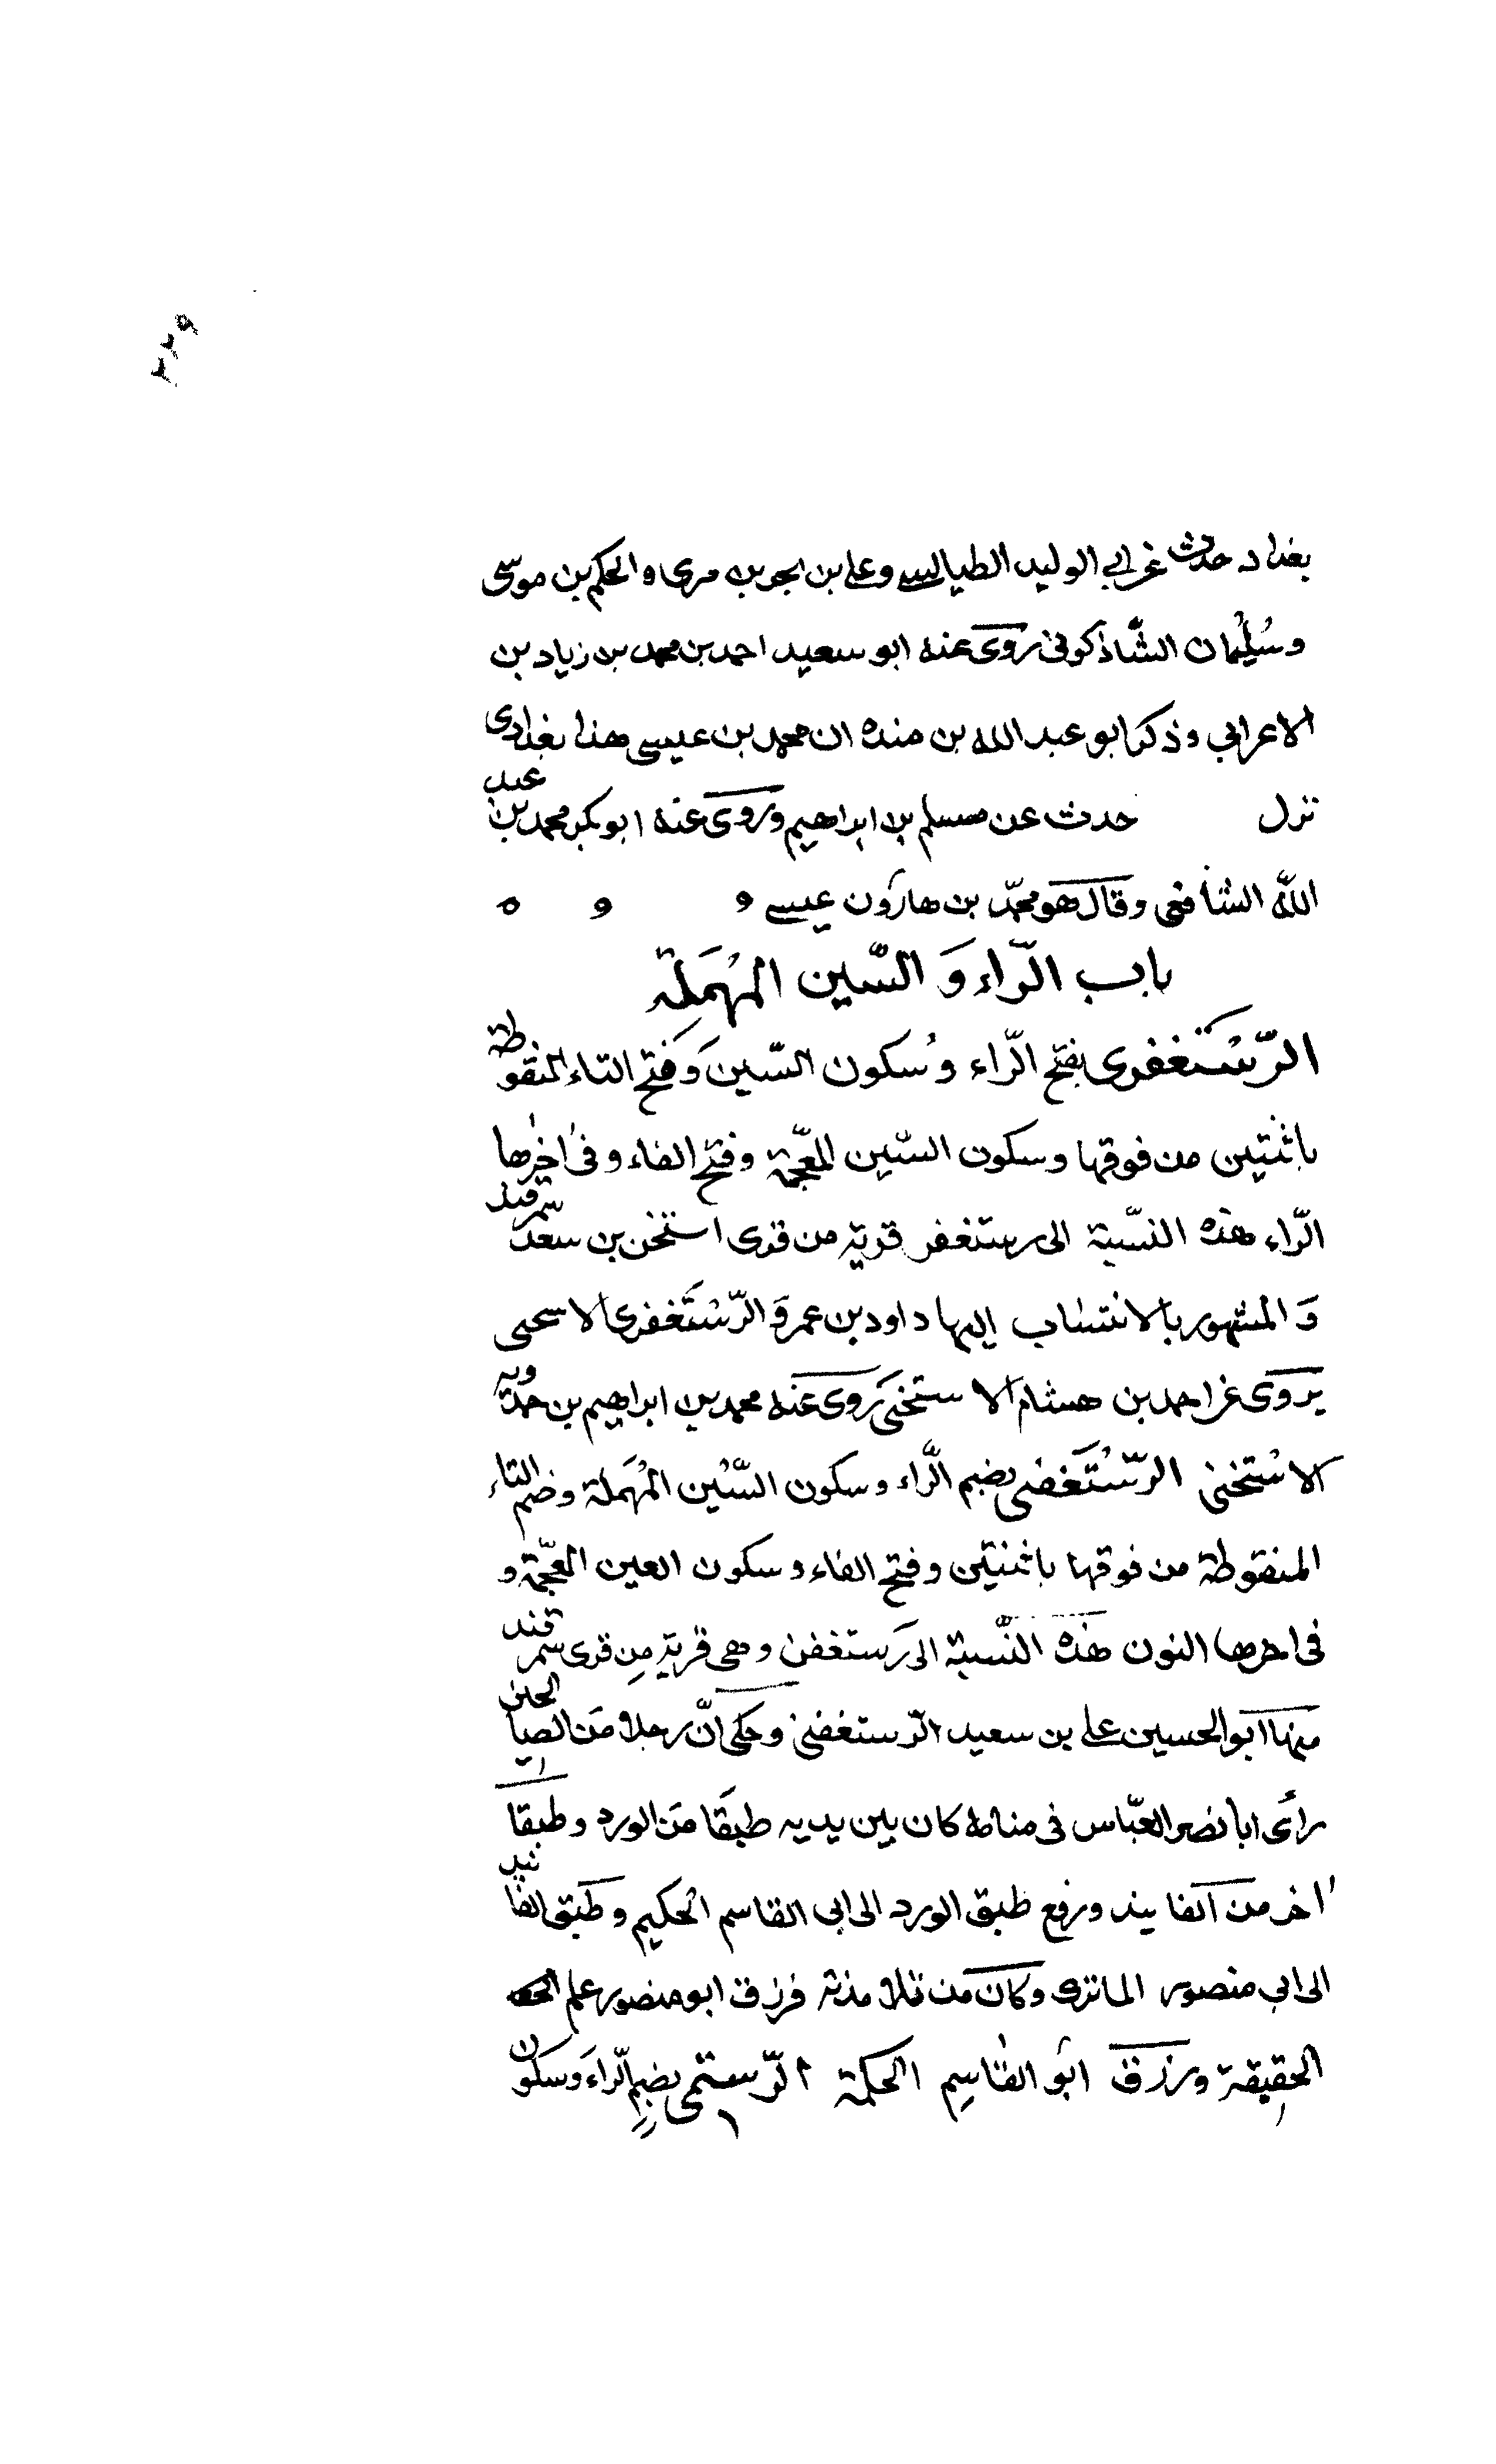 ٢٢٩
بغداد حدث عن ابي الوليد الطيالسي وعلي بن بحر بن برى والحكم بن موسى
وسُليمان الشّاذكونى روى عنه ابو سعيد احمد بن محمد بن زياد بن
الاعرابي وذكر ابو عبد الله بن منده ان محمد بن عيسى هذا بغدادى
نزل حدث عن مسلم بن ابراهيم وروى عنه ابو بكر محمد بن عبد
اللّه الشافعى وقال هو محمّد بن هارون عيسى ه ه ه
باب الرّاء وَ السّين المُهمَلة
الرّسْتَغفرى بفتح الرّاء وسُكون السّين وَفتح التاء المنقوطة
باثنتين من فوقها وسكون السّين المعجّمة وفتح الفاء وفى اخرها
الرّاء هذه النسّبة الى رستغفر قرية من قرى استخن بن سغد سمرقند
وَ المشهور بالانتساب اليها داود بن عمرو الرّسْتَغفرى الاسحى
يروى عن احمد بن هشام الاستخنى روى عنه محمد بن ابراهيم بن حمدويه
الاسْتخنى الرّسْتَغفنى بضم الرّاء وسكون السّين المُهملة وضم التاء
المنقوطة من فوقها باثنتين وفتح الفاء وسكون الغين المعجّمة و
فى اخرها النون هذه النّسبة الى رَستغفن وهى قرية مِن قرى سمرقند
منها ابو الحسين على بن سعيد الرّستغفنى وحكى انّ رجلا من الصالحين
رأى ابا نصر العبّاس فى منامه كان بين يديه طبقًا مَن الورد وطبقا
اخر من الفانيد ورفع طبق الورد الى ابى القاسم الحكيم وطبق الفانيد
الى ابي منصور الماتري وكان من تلامذته فرزق ابو منصور علم
الحقيقة ورزق ابو القاسم الحكمة الرّستمى بضم الرّاءَ وسكون